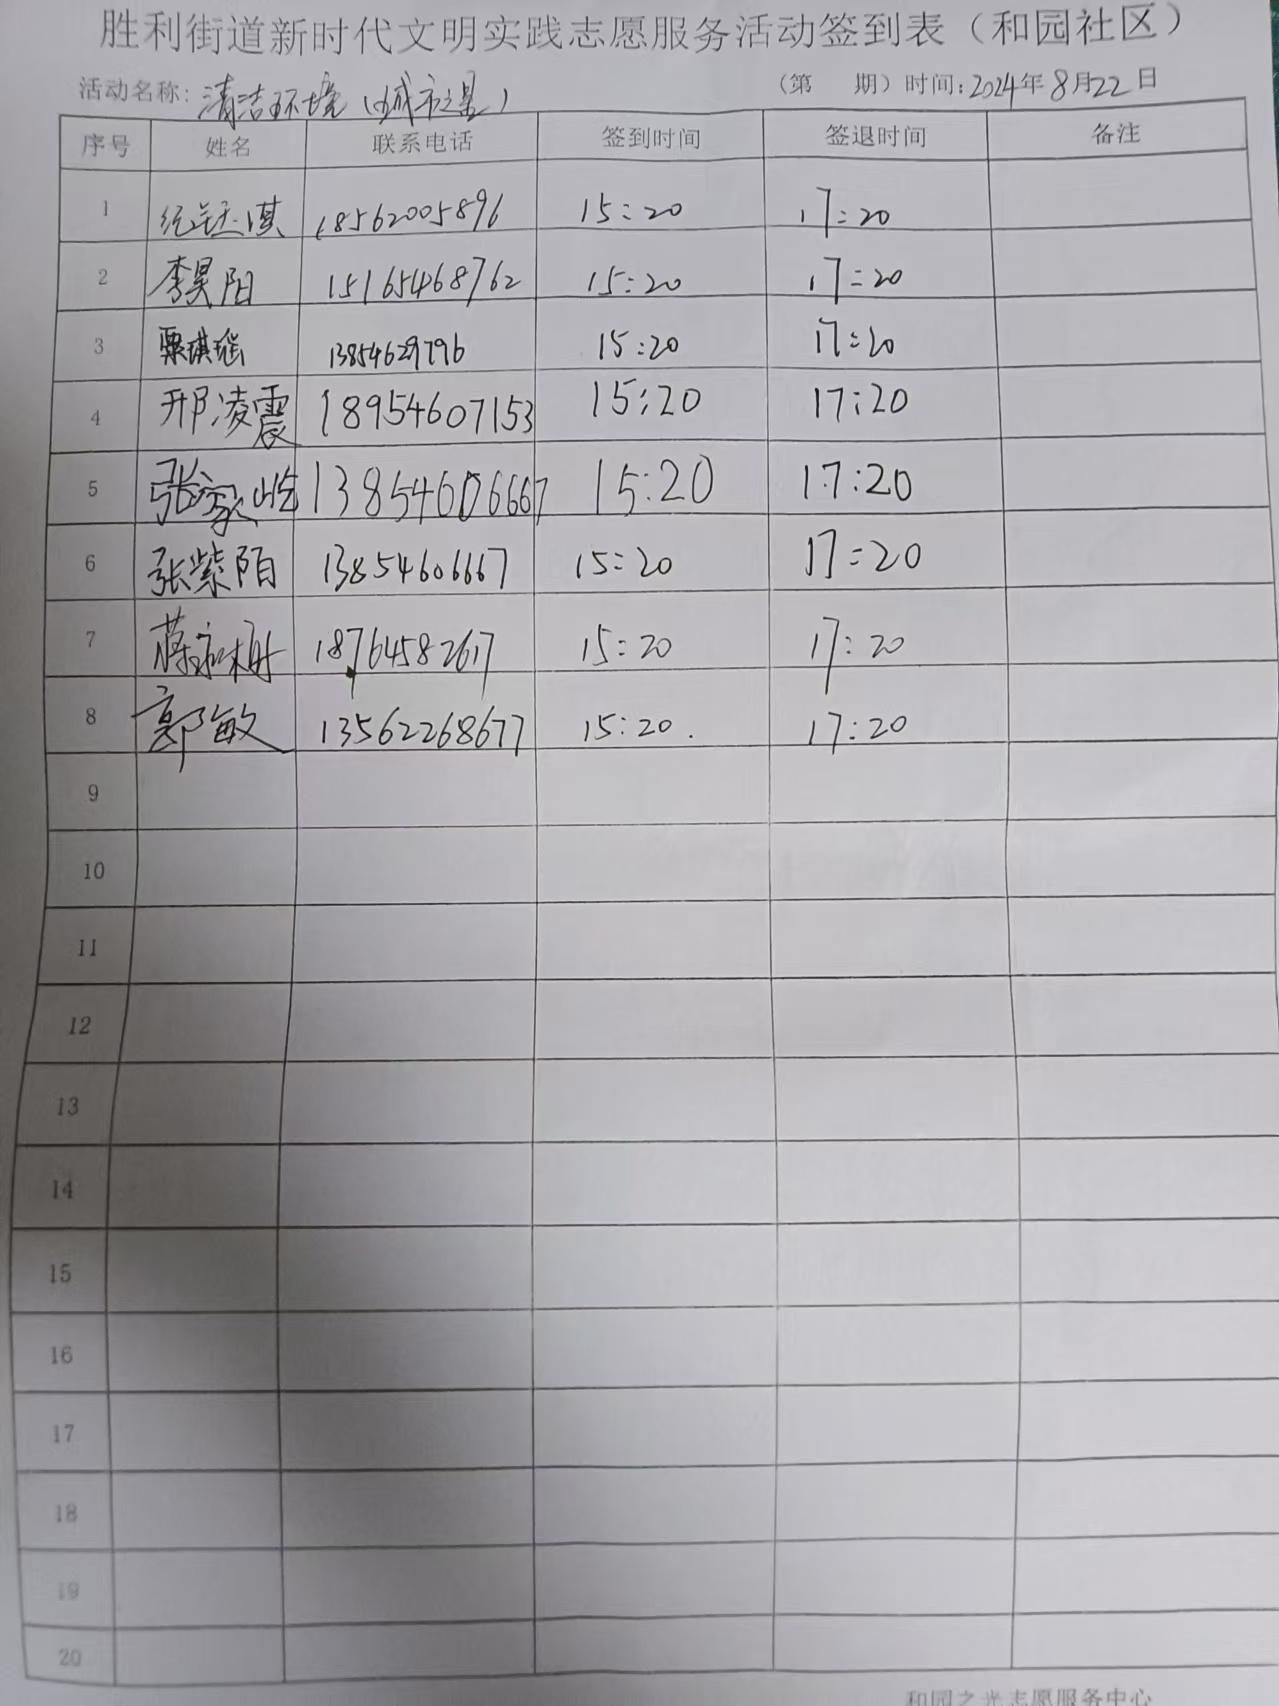 胜利街道新时代文明实践志愿服务活动签到表（和园社区）
活动名称：清洁环境（城市之星） （第 期）时间：2024年8月22日
序号 姓名 联系电话 签到时间 签退时间 备注
1 淇 18562005896 15:20 17:20
2 李昊阳 15165468762 15:20 17:20
3 栗琪瑶 13854629796 15:20 17:20
4 邢凌震 18954607153 15:20 17:20
5 张家屹 13854606667 15:20 17:20
6 张紫陌 13854606667 15:20 17:20
7 蒋 18764582617 15:20 17:20
8 郭敏 13562268677 15:20. 17:20
9
10
11
12
13
14
15
16
17
18
19
20
和园之光志愿服务中心